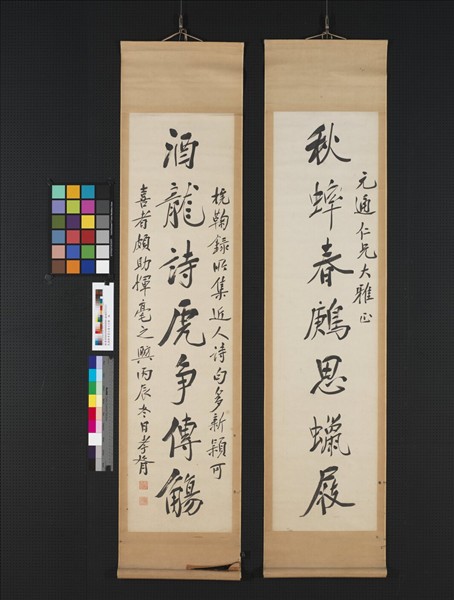 元通仁兄大雅正
秋蟀春鷓思蠟屐
梡鞠録所集近人詩句多新穎可
酒龍詩虎争傳觴
喜者頗助揮毫之興丙辰冬日孝胥